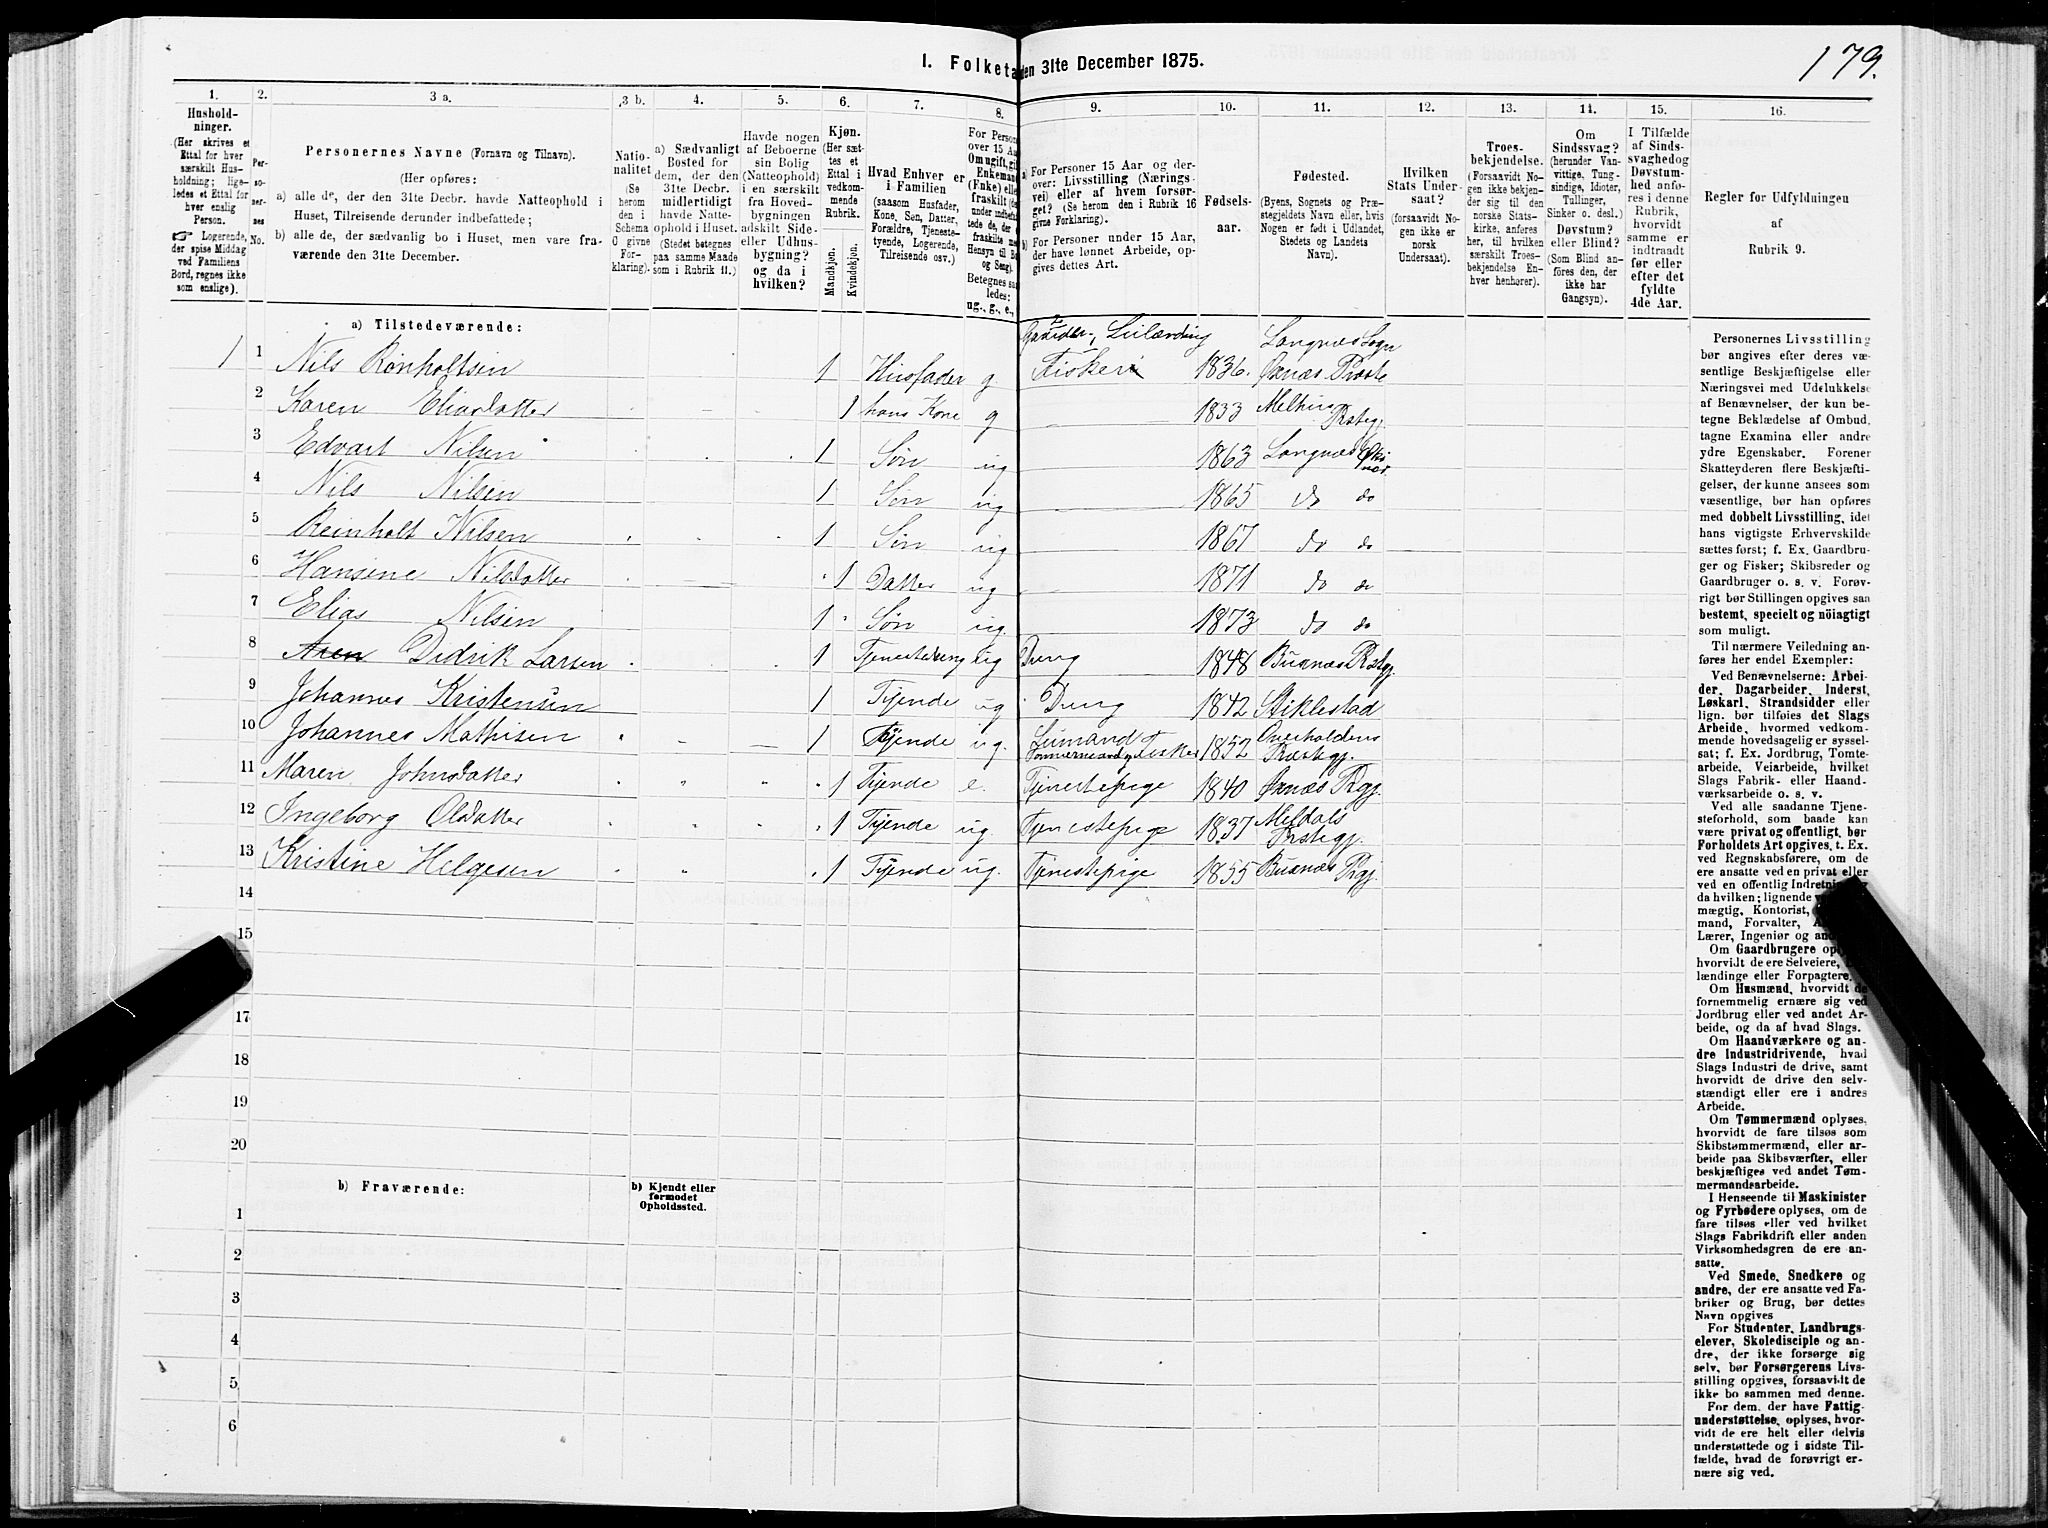 179.
1. Folketæ
den 31te December 1875.
1. 2. 3 a. 3 b. 4. 5. 6. 7. 8. 9. 10. 11. 12. 13. 14. 15. 16.
Hushold-
ninger.
(Her skrives et
Ettal for hver
særskilt Hus-
holdning; lige-
ledes et Ettal for
hver enslig
Person.
☞ Logerende,
der spise Middag
ved Familiens
Bord, regnes ikke
som enslige).
Per-
so-
ner-
nes
No.
Personernes Navne (Fornavn og Tilnavn).
(Her opføres:
a) alle de, der den 31te Decbr. havde Natteophold i
Huset, Tilreisende derunder indbefattede;
b) alle de, der sædvanlig bo i Huset, men vare fra-
værende den 31te December.
Natio-
nalitet
(Se
herom
den i
Schema
O givne
For-
klaring).
a) Sædvanligt
Bosted for
dem, der den
31te Decbr.
midlertidigt
havde Natte-
ophold i Huset.
(Stedet betegnes
paa samme Maade
som i Rubrik 11.)
Havde nogen
af Beboerne
sin Bolig
(Natteophold)
i en særskilt
fra Hoved-
bygningen
adskilt Side-
eller Udhus-
bygning?
og da i
hvilken?
Kjøn.
(Her sæt-
tes et
Ettal i
vedkom-
mende
Rubrik.
Mandkjøn.
Kvindekjøn.
Hvad Enhver er
i Familien
(saasom Husfader,
Kone, Søn, Datter,
Forældre, Tjeneste-
tyende, Logerende,
Tilreisende osv.)
For Person
over 15 Aa
Om ugift, gif
Enkemand
(Enke) elle
fraskilt (de
under indbefat-
tede de, der e
fraskilte me
Hensyn til Bo
og Seng).
Betegnes saa
ledes:
ug., g., e.,
a) For Personer 15 Aar og der-
over: Livsstilling (Nærings-
vei) eller af hvem forsør-
get? (Se herom den i Rubrik 16
givne Forklaring).
b) For Personer under 15 Aar,
der have lønnet Arbeide, op-
gives dettes Art.
Fødsels-
aar.
Fødested.
(Byens, Sognets og Præ-
stegjeldets Navn eller, hvis
Nogen er født i Udlandet,
Stedets og Landets
Navn).
Hvilken
Stats Under-
saat?
(forsaavidt No-
gen ikke er
norsk
Undersaat).
Troes-
bekjendelse.
(Forsaavidt No-
gen ikke bekjen-
der sig til den
norske Stats-
kirke, anføres
her, til hvilken
særskilt Troes-
bekjendelse En-
hver henhører).
Om
Sindssvag?
(herunder Van-
vittige, Tung-
sindige, Idioter,
Tullinger,
Sinker o. desl.)
Døvstum?
eller Blind?
(Som Blind an-
føres den, der
ikke har
Gangsyn).
I Tilfælde
af Sinds-
svaghed og
Døvstum-
hed anfø-
res i denne
Rubrik,
hvorvidt
samme er
indtraadt
før eller
efter det
fyldte
4de Aar.
Regler for Udfyldningen
af
Rubrik 9.
a) Tilstedeværende:
Leilænding Langnæs Sogn
1 1 Nils Rønholtsen 1 Husfader g. Fisker 1836. Øxnæs Præste
2 Karen Eliasdatter 1 hans Kone g 1833 Melhus Prstegj.
3 Edvart Nilsen 1 Søn ug 1863 Langnæs Øksnæs
4 Nils Nilsen 1 Søn ug 1865 do do
5 Reinholt Nilsen 1 Søn ug 1867 do do
6 Hansine Nilsdatter 1 Datter ug 1871 do do
7 Elias Nilsen 1 Søn ug. 1873 do do
8 Didrik Larsen 1 Tjenestedreng ug Dreng 1848 Buxnæs Prstgj.
9 Johannes Kristensen 1 Tjende ug Dreng 1842 Stiklestad
10 Johannes Mathisen 1 Tjende ug. Fisker 1852 Overhaldens Præstegj.
11 Maren Johnsdatter 1 Tjende e. Tjenestepige 1840 Øxnæs Prgj.
12 Ingeborg Olsdatter 1 Tjende ug. Tjenestepige 1837 Meldals Prstegj.
13 Kristine Helgesen 1 Tjende ug. Tjenestepige 1855 Buxnæs Prgj.
14
15
17
18
19
20
b) Fraværende:
b) Kjendt eller
formodet
Opholdssted.
1
2
3
4
5
6
Personernes Livsstilling
bør angives efter deres væ-
sentlige Beskjæftigelse eller
Næringsvei med Udelukkelse
af Benævnelser, der kun be-
tegne Beklædelse af Ombud,
tagne Examina eller andre
ydre Egenskaber. Forener
Skatteyderen flere Beskjæfti-
gelser, der kunne ansees som
væsentlige, bør han opføres
med dobbelt Livsstilling, idet
hans vigtigste Erhvervskilde
sættes først; f. Ex. Gaardbru-
ger og Fisker; Skibsreder og
Gaardbruger o. s. v. Forøv-
rigt bør Stillingen opgives saa
bestemt, specielt og nöiagtigt
som muligt.
Til nærmere Veiledning an-
føres her endel Exempler:
Ved Benævnelserne: Arbei-
der, Dagarbeider, Inderst,
Løskarl, Strandsidder eller
lign. bør tilføies det Slags
Arbeide, hvormed vedkom-
mende hovedsagelig er syssel-
sat; f. Ex. Jordbrug, Tomte-
arbeide, Veiarbeide, hvilket
Slags Fabrik- eller Haand-
værksarbeide o. s. v.
Ved alle saadanne Tjene-
steforhold, som baade kan
være privat og offentligt, bør
Forholdets Art opgives, t. Ex.
ved Regnskabsførere, om de
ere ansatte ved en privat eller
ved en offentlig Indretni
da hvilken; lignende
mægtig, Kontorist,
mand, Forvalter,
Lærer, Ingeniør og and
Om Gaardbrugere op
hvorvidt de ere Selveiere,
lændinge eller Forpagtere.
Om Husmænd, hvorvidt de
fornemmelig ernære sig ved
Jordbrug eller ved andet Ar-
beide, og da af hvad Slags.
Om Haandværkere og an-
dre Industridrivende, hvad
Slags Industri de drive, samt
hvorvidt de drive den selv-
stændigt eller ere i andres
Arbeide.
Om Tømmermænd oplyses,
hvorvidt de fare tilsøs som
Skibstømmermænd, eller ar-
beide paa Skibsværfter, eller
beskjæftiges ved andet Tøm-
mermandsarbeide.
I Henseende til Maskinister
og Fyrbødere oplyses, om de
fare tilsøs eller ved hvilket
Slags Fabrikdrift eller anden
Virksomhedsgren de ere an-
satte.
Ved Smede, Snedkere og
andre, der ere ansatte ved Fa-
briker og Brug, bør dettes
Navn opgives
For Studenter, Landbrugs-
elever, Skoledisciple og an-
dre, der ikke forsørge sig
selv, bør Forsørgerens Livs-
stilling opgives, forsaavidt de
ikke bo sammen med denne.
For dem, der have Fattig-
understøttelse, oplyses, hvor-
vidt de ere helt eller delvis
understøttede og i sidste Til-
fælde, hvad de forøvrigt er-
nære sig ved.